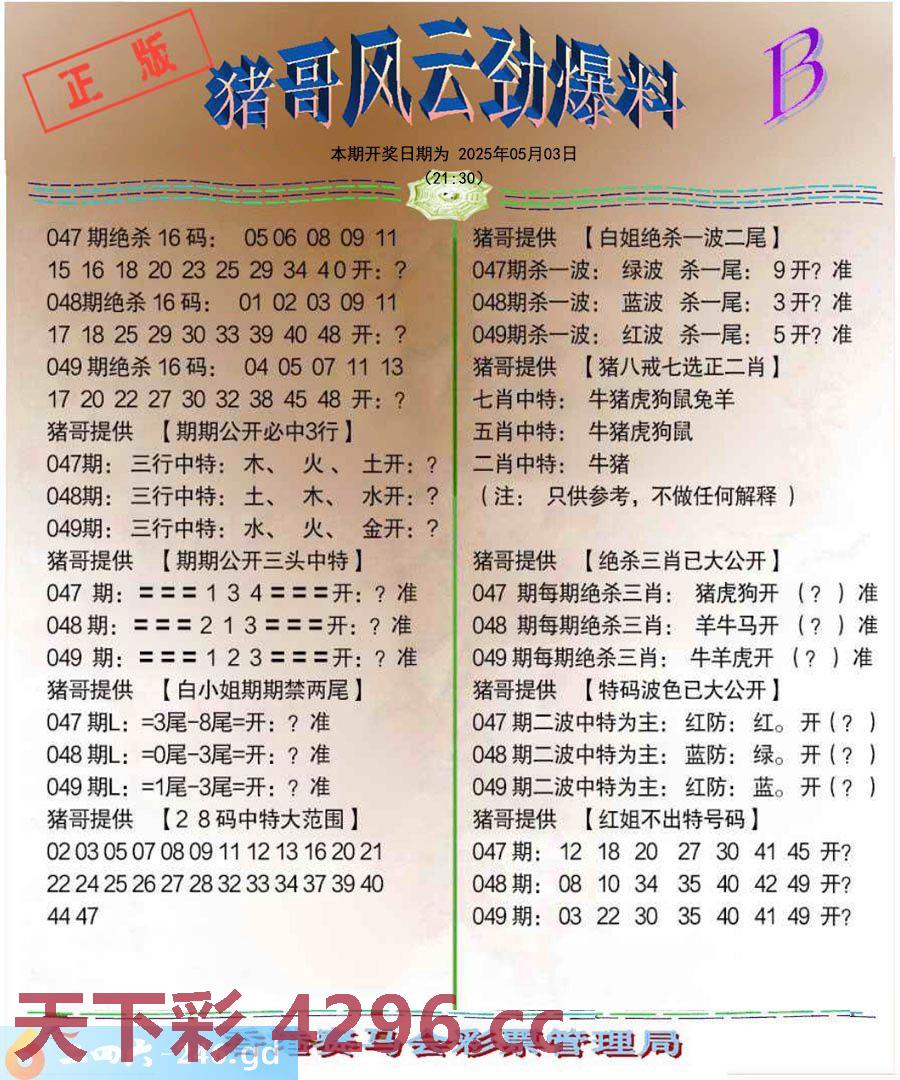 正版
猪哥风云劲爆料
B
本期开奖日期为 2025年05月03日
(21:30)
047期绝杀16码： 05 06 08 09 11
15 16 18 20 23 25 29 34 40开：？
048期绝杀16码： 01 02 03 09 11
17 18 25 29 30 33 39 40 48 开：？
049期绝杀16码： 04 05 07 11 13
17 20 22 27 30 32 38 45 48 开：？
猪哥提供 【期期公开必中3行】
047期：三行中特：木、 火、 土开：？
048期：三行中特：土、 木、 水开：？
049期：三行中特：水、 火、 金开：？
猪哥提供 【期期公开三头中特】
047 期：===134===开：？准
048期：===213===开：？准
049 期：===123===开：？准
猪哥提供 【白小姐期期禁两尾】
047期L：=3尾-8尾=开：？准
048期L：=0尾-3尾=开：？准
049期L：=1尾-3尾=开：？准
猪哥提供 【28码中特大范围】
02 03 05 07 08 09 11 12 13 16 20 21
22 24 25 26 27 28 32 33 34 37 39 40
44 47
猪哥提供 【白姐绝杀一波二尾】
047期杀一波：绿波 杀一尾：9开？准
048期杀一波：蓝波 杀一尾：3开？准
049期杀一波：红波 杀一尾：5开？准
猪哥提供 【猪八戒七选正二肖】
七肖中特： 牛猪虎狗鼠兔羊
五肖中特： 牛猪虎狗鼠
二肖中特： 牛猪
（注： 只供参考，不做任何解释）
猪哥提供 【绝杀三肖已大公开】
047 期每期绝杀三肖： 猪虎狗开（？）准
048 期每期绝杀三肖： 羊牛马开（？）准
049期每期绝杀三肖： 牛羊虎开（？）准
猪哥提供 【特码波色已大公开】
047期二波中特为主：红防：红。开（？）
048期二波中特为主：蓝防：绿。开（？）
049期二波中特为主：红防：蓝。开（？）
猪哥提供 【红姐不出特号码】
047期： 12 18 20 27 30 41 45 开？
048期： 08 10 34 35 40 42 49 开？
049期： 03 22 30 35 40 41 49 开？
天下彩 4296.cc
马会彩票管理局